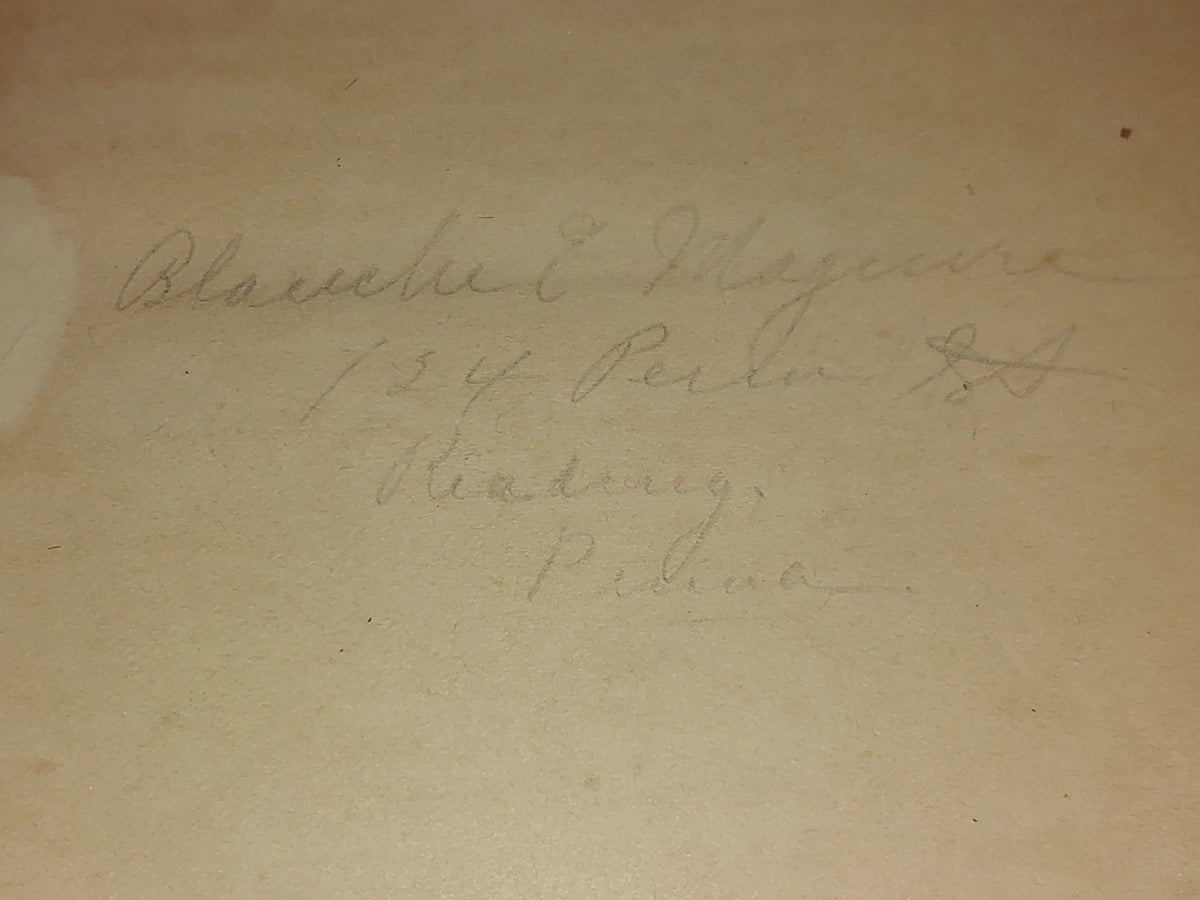 Blanche E Maguire
724 Penn St
Reading.
Penna.